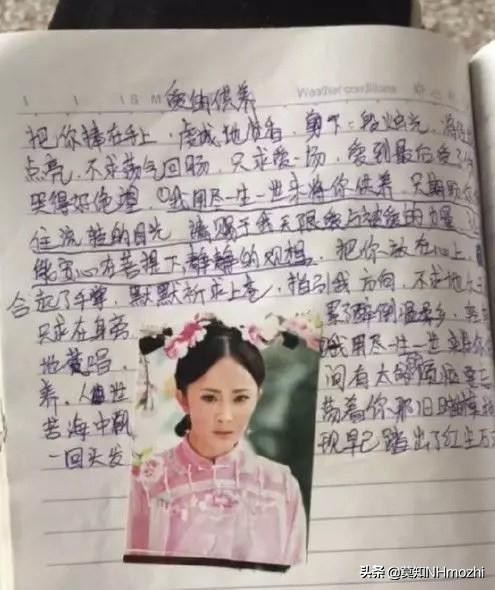 Weather conditions
爱的供养
把你捧在手上,虔诚地焚香,剪下一段烛光,将
点亮,不求荡气回肠,只求爱一场,爱到最后受了
哭得好绝望,我用尽一生一世来将你供养,只期盼你
住流转的目光,请赐予我无限爱与被爱的力量,
能安心在菩提下静静的观想,把你放在心上,
合起了手掌,默默祈求上苍,指引我方向,不求地久
只求在身旁 累了醉倒温柔乡,
地黄 我用尽一生一世来
养,人世 间有太多的烦恼要
苦海中飘荡着你那旧
一回头发现早已踏出了红尘万
头条 @莫知NHmozhi